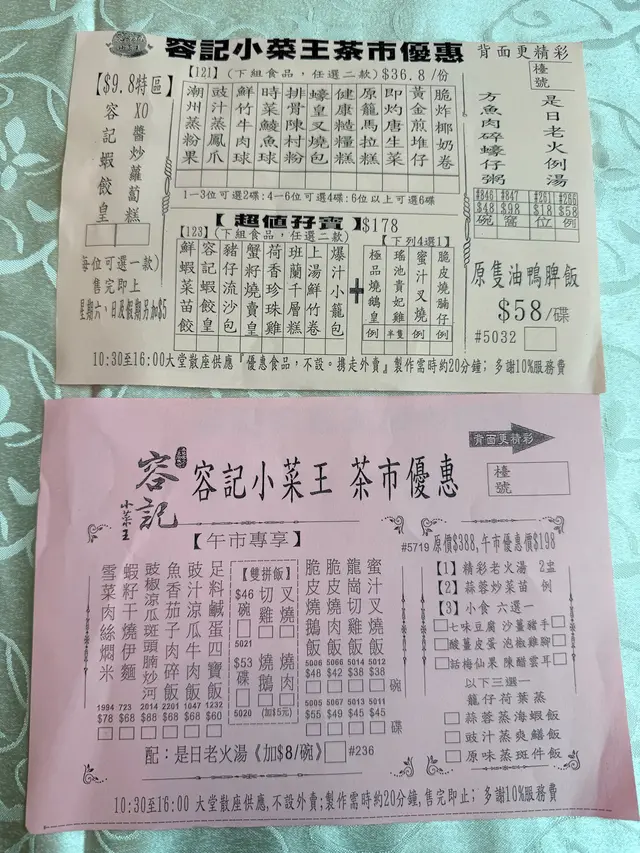 容記小菜王茶市優惠
背面更精彩
檯號
【$9.8特區】
XO醬炒蘿蔔糕
容記蝦餃皇
(每位可選一款)
售完即止
星期六、日及假期另加$5
【121】(下組食品,任選二款)$36.8/份
脆炸椰奶卷
黃金煎堆仔
即灼唐生菜
原籠馬拉糕
健康糙糧糕
蠔皇叉燒包
排骨陳村粉
時菜鯪魚球
鮮竹牛肉球
豉汁蒸鳳爪
潮州蒸粉果
1-3位可選2碟;4-6位可選4碟;6位以上可選6碟
【超值孖寶】$178
【123】(下組食品,任選二款)
爆汁小籠包
上湯鮮竹卷
班蘭千層糕
荷香珍珠雞
蟹籽燒賣皇
豬仔流沙包
容記蝦餃皇
鮮蝦菜苗餃
+
【下列4選1】
脆皮燒腩仔 例
蜜汁叉燒 例
瑤池貴妃雞 半隻
極品燒鵝皇 例
是日老火例湯
方魚肉碎蠔仔粥
#846 #847 #251 #256
$48 $98 $18 $58
碗 窩 位 例
原隻油鴨脾飯
$58/碟
#5032
10:30至16:00大堂散座供應『優惠食品,不設。携走外賣』製作需時約20分鐘; 多謝10%服務費
背面更精彩
容記小菜王
容記小菜王 茶市優惠
檯號
【午市專享】
足料鹹蛋四寶飯 1232 $60
豉汁涼瓜牛肉飯 1047 $68
魚香茄子肉碎飯 2201 $68
豉椒涼瓜斑頭腩炒河 2014 $68
蝦籽干燒伊麵 723 $68
雪菜肉絲燜米 1994 $78
【雙拼飯】
$46碗 切雞 叉燒
5021
$53碟 燒鵝 燒肉
5020 (加$5元)
蜜汁叉燒飯 5012 $38 5011 $45
龍崗切雞飯 5014 $38 5013 $45
脆皮燒肉飯 5066 $42 5067 $49
脆皮燒鵝飯 5006 $48 5005 $55
碗
碟
配:是日老火湯《加$8/碗》 #236
#5719 原價$388,午市優惠價$198
【1】精彩老火湯 2盅
【2】蒜蓉炒菜苗 例
【3】小食 六選一
七味豆腐 沙薑豬手
酸薑皮蛋 泡椒雞腳
話梅仙果 陳醋雲耳
以下三選一
籠仔荷葉蒸
蒜蓉蒸海蝦飯
豉汁蒸爽鱔飯
原味蒸斑件飯
10:30至16:00 大堂散座供應,不設外賣;製作需時約20分鐘,售完即止; 多謝10%服務費